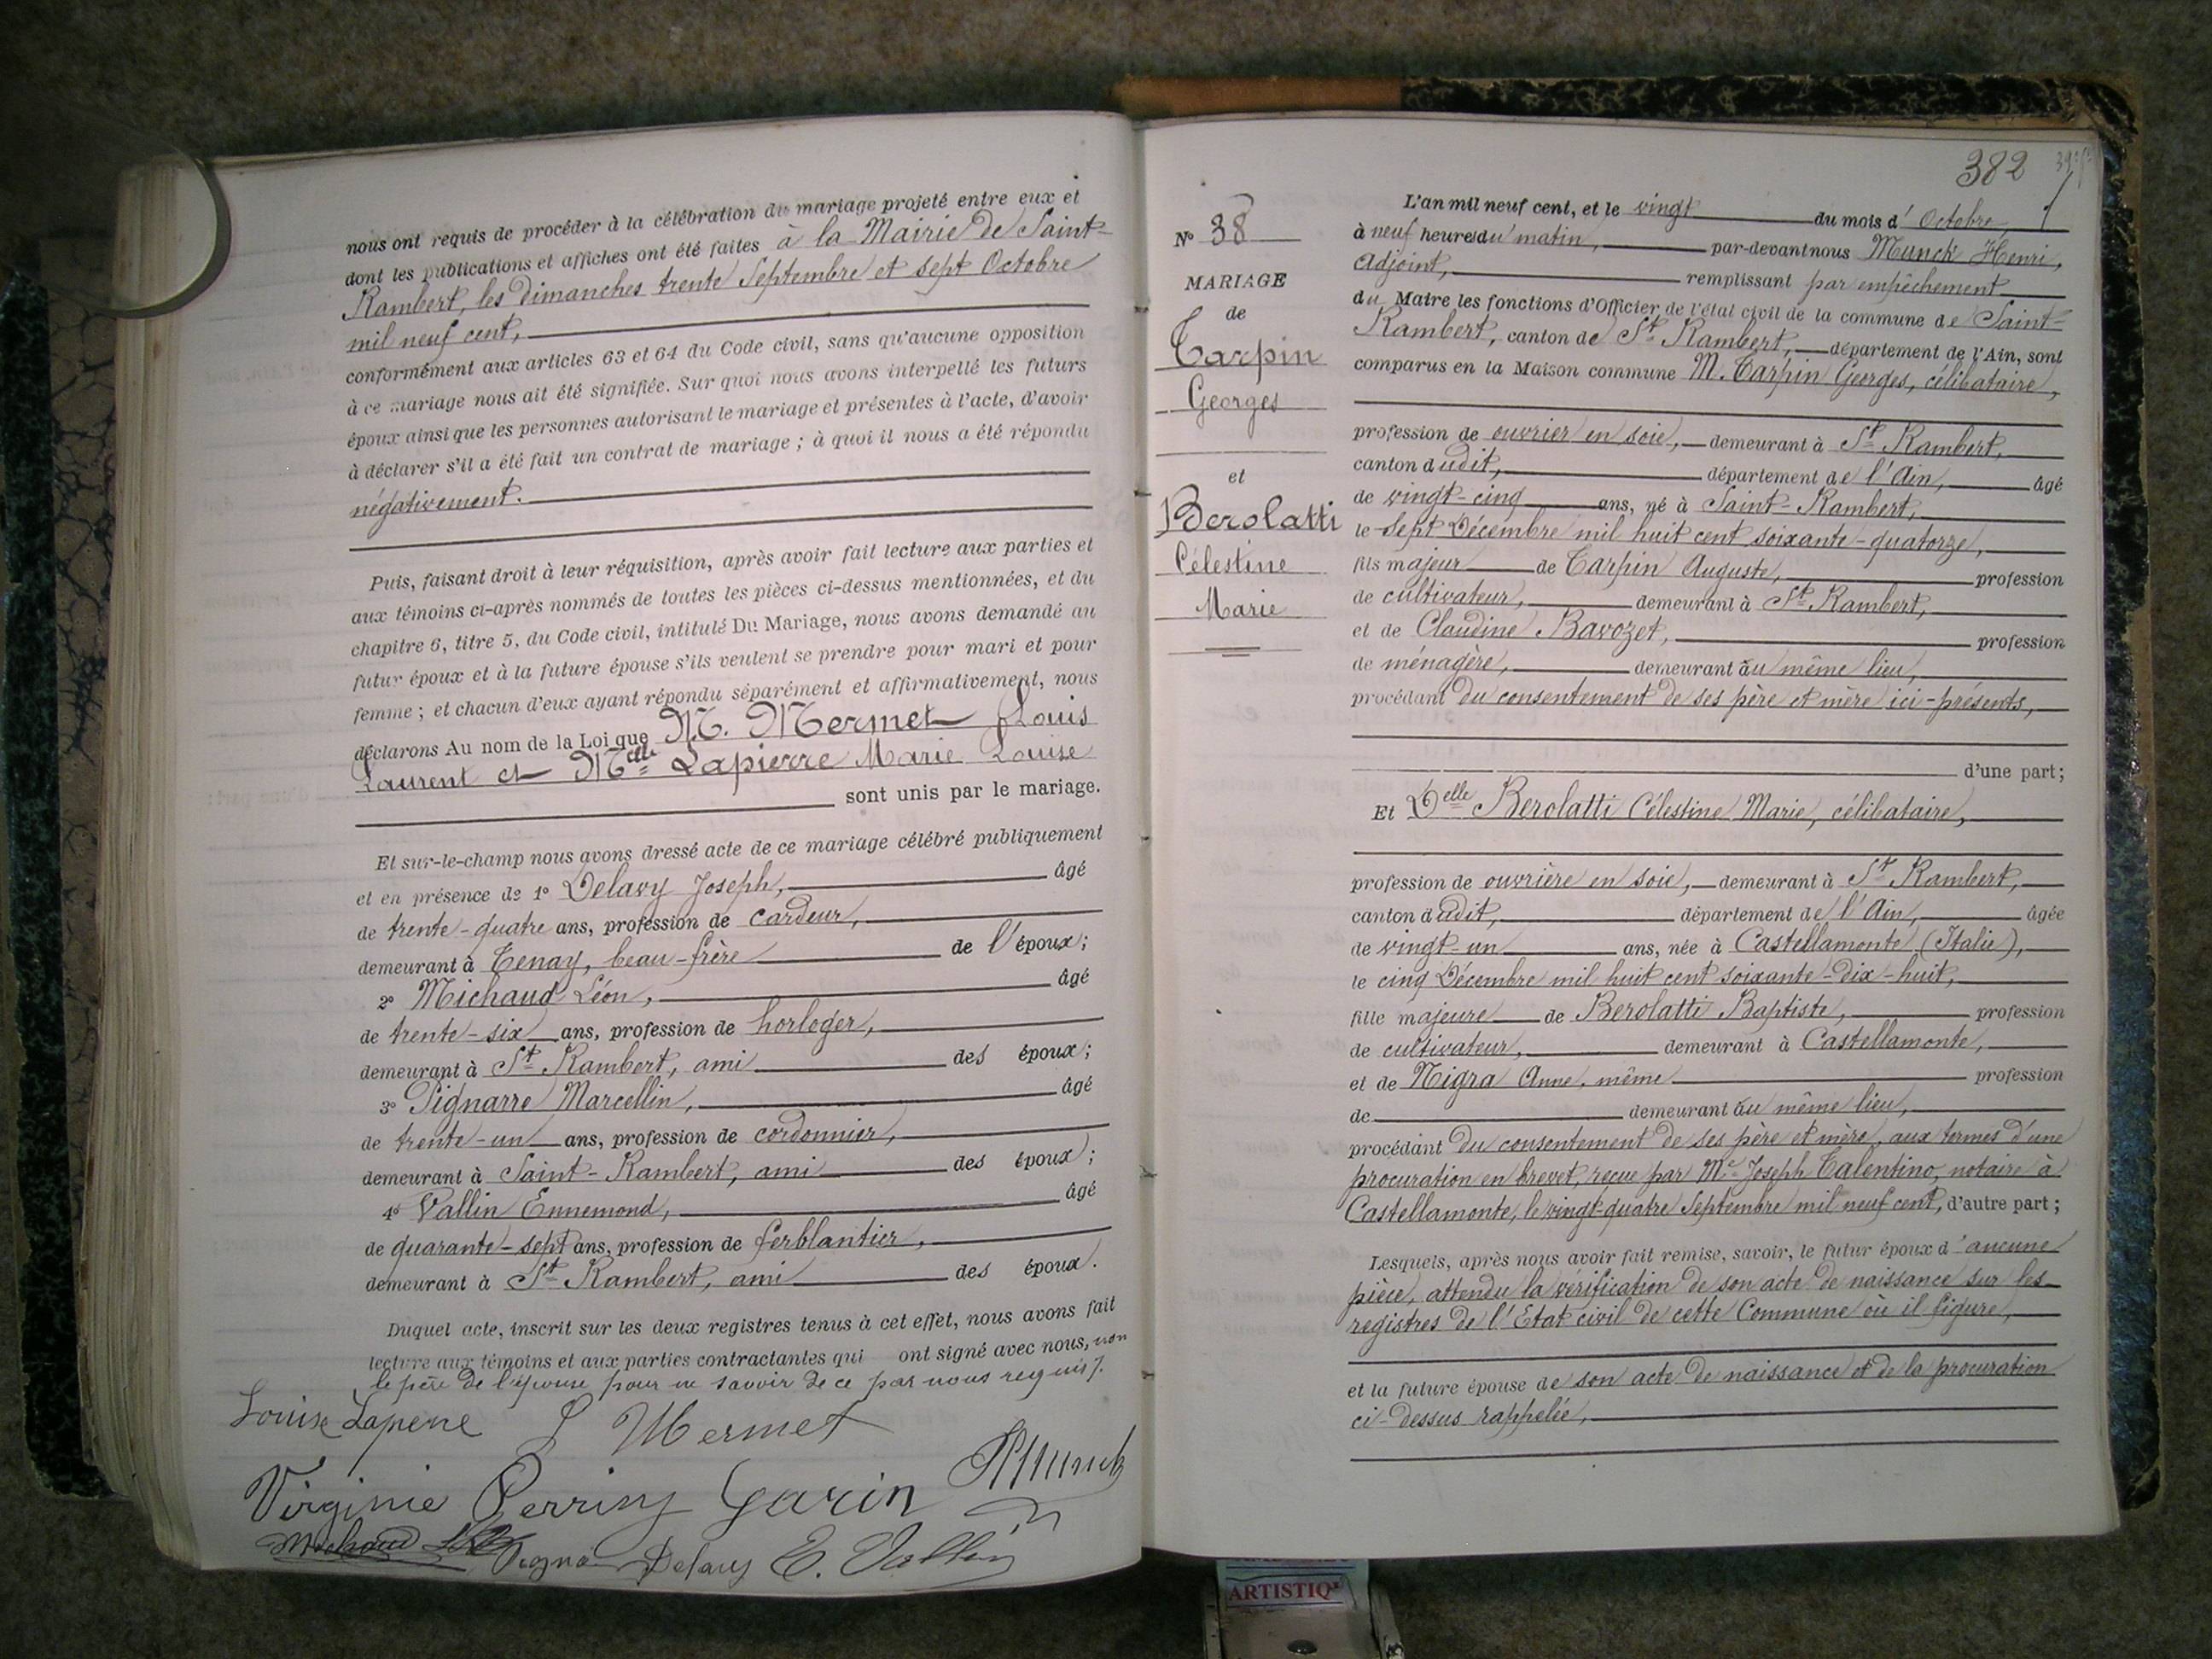 nous ont requis de procéder à la célébration du mariage projeté entre eux et
dont les publications et affiches ont été faites à la Mairie de Saint-
Rambert, les dimanches trente Septembre et sept Octobre
mil neuf cent,
conformément aux articles 63 et 64 du Code civil, sans qu'aucune opposition
à ce mariage nous ait été signifiée. Sur quoi nous avons interpellé les futurs
époux ainsi que les personnes autorisant le mariage et présentes à l'acte, d'avoir
à déclarer s'il a été fait un contrat de mariage ; à quoi il nous a été répondu
négativement.
Puis, faisant droit à leur réquisition, après avoir fait lecture aux parties et
aux témoins ci-après nommés de toutes les pièces ci-dessus mentionnées, et du
chapitre 6, titre 5, du Code civil, intitulé Du Mariage, nous avons demandé au
futur époux et à la future épouse s'ils veulent se prendre pour mari et pour
femme ; et chacun d'eux ayant répondu séparément et affirmativement, nous
déclarons Au nom de la Loi que M. Mermet Louis
Laurent et Melle Lapierre Marie Louise
sont unis par le mariage.
Et sur-le-champ nous avons dressé acte de ce mariage célébré publiquement
et en présence de 1° Delavy Joseph, âgé
de trente-quatre ans, profession de cardeur,
demeurant à Tenay, beau-frère de l'époux;
2° Michaud Léon, âgé
de trente-six ans, profession de horloger,
demeurant à St Rambert, ami des époux;
3° Pignarre Marcellin, âgé
de trente-un ans, profession de cordonnier,
demeurant à Saint-Rambert, ami des époux;
4° Vallin Ennemond, âgé
de quarante-sept ans, profession de ferblantier,
demeurant à St Rambert, ami des époux.
Duquel acte, inscrit sur les deux registres tenus à cet effet, nous avons fait
lecture aux témoins et aux parties contractantes qui ont signé avec nous, non
le père de l'épouse pour ne savoir de ce par nous requis.
Louise Lapierre L Mermet
Virginie Perrin Garin HMunck
Michaud Delavy E. Vallin
382
N° 38
MARIAGE
de
Tarpin
Georges
et
Berolatti
Célestine
Marie
L'an mil neuf cent, et le vingt du mois d'Octobre,
à neuf heures du matin, par-devant nous Munck Henri,
Adjoint, remplissant par empêchement
du Maire les fonctions d'Officier de l'état civil de la commune de Saint-
Rambert, canton de St Rambert, département de l'Ain, sont
comparus en la Maison commune M. Tarpin Georges, célibataire,
profession de ouvrier en soie, demeurant à St Rambert,
canton dudit, département de l'Ain, âgé
de vingt-cinq ans, né à Saint-Rambert,
le sept Décembre mil huit cent soixante-quatorze,
fils majeur de Tarpin Auguste, profession
de cultivateur, demeurant à St Rambert,
et de Claudine Bavozet, profession
de ménagère, demeurant au même lieu,
procédant du consentement de ses père et mère ici-présents,
d'une part;
Et Delle Berolatti Célestine Marie, célibataire,
profession de ouvrière en soie, demeurant à St Rambert,
canton dudit, département de l'Ain, âgée
de vingt-un ans, née à Castellamonte (Italie),
le cinq Décembre mil huit cent soixante-dix-huit,
fille majeure de Berolatti Baptiste, profession
de cultivateur, demeurant à Castellamonte,
et de Nigra Anne, même profession
de demeurant au même lieu,
procédant du consentement de ses père et mère, aux termes d'une
procuration en brevet, reçue par Me Joseph Talentino, notaire à
Castellamonte, le vingt-quatre Septembre mil neuf cent, d'autre part;
Lesquels, après nous avoir fait remise, savoir, le futur époux d'aucune
pièce, attendu la vérification de son acte de naissance sur les
registres de l'Etat civil de cette Commune où il figure,
et la future épouse de son acte de naissance et de la procuration
ci-dessus rappelée,
ARTISTIQ